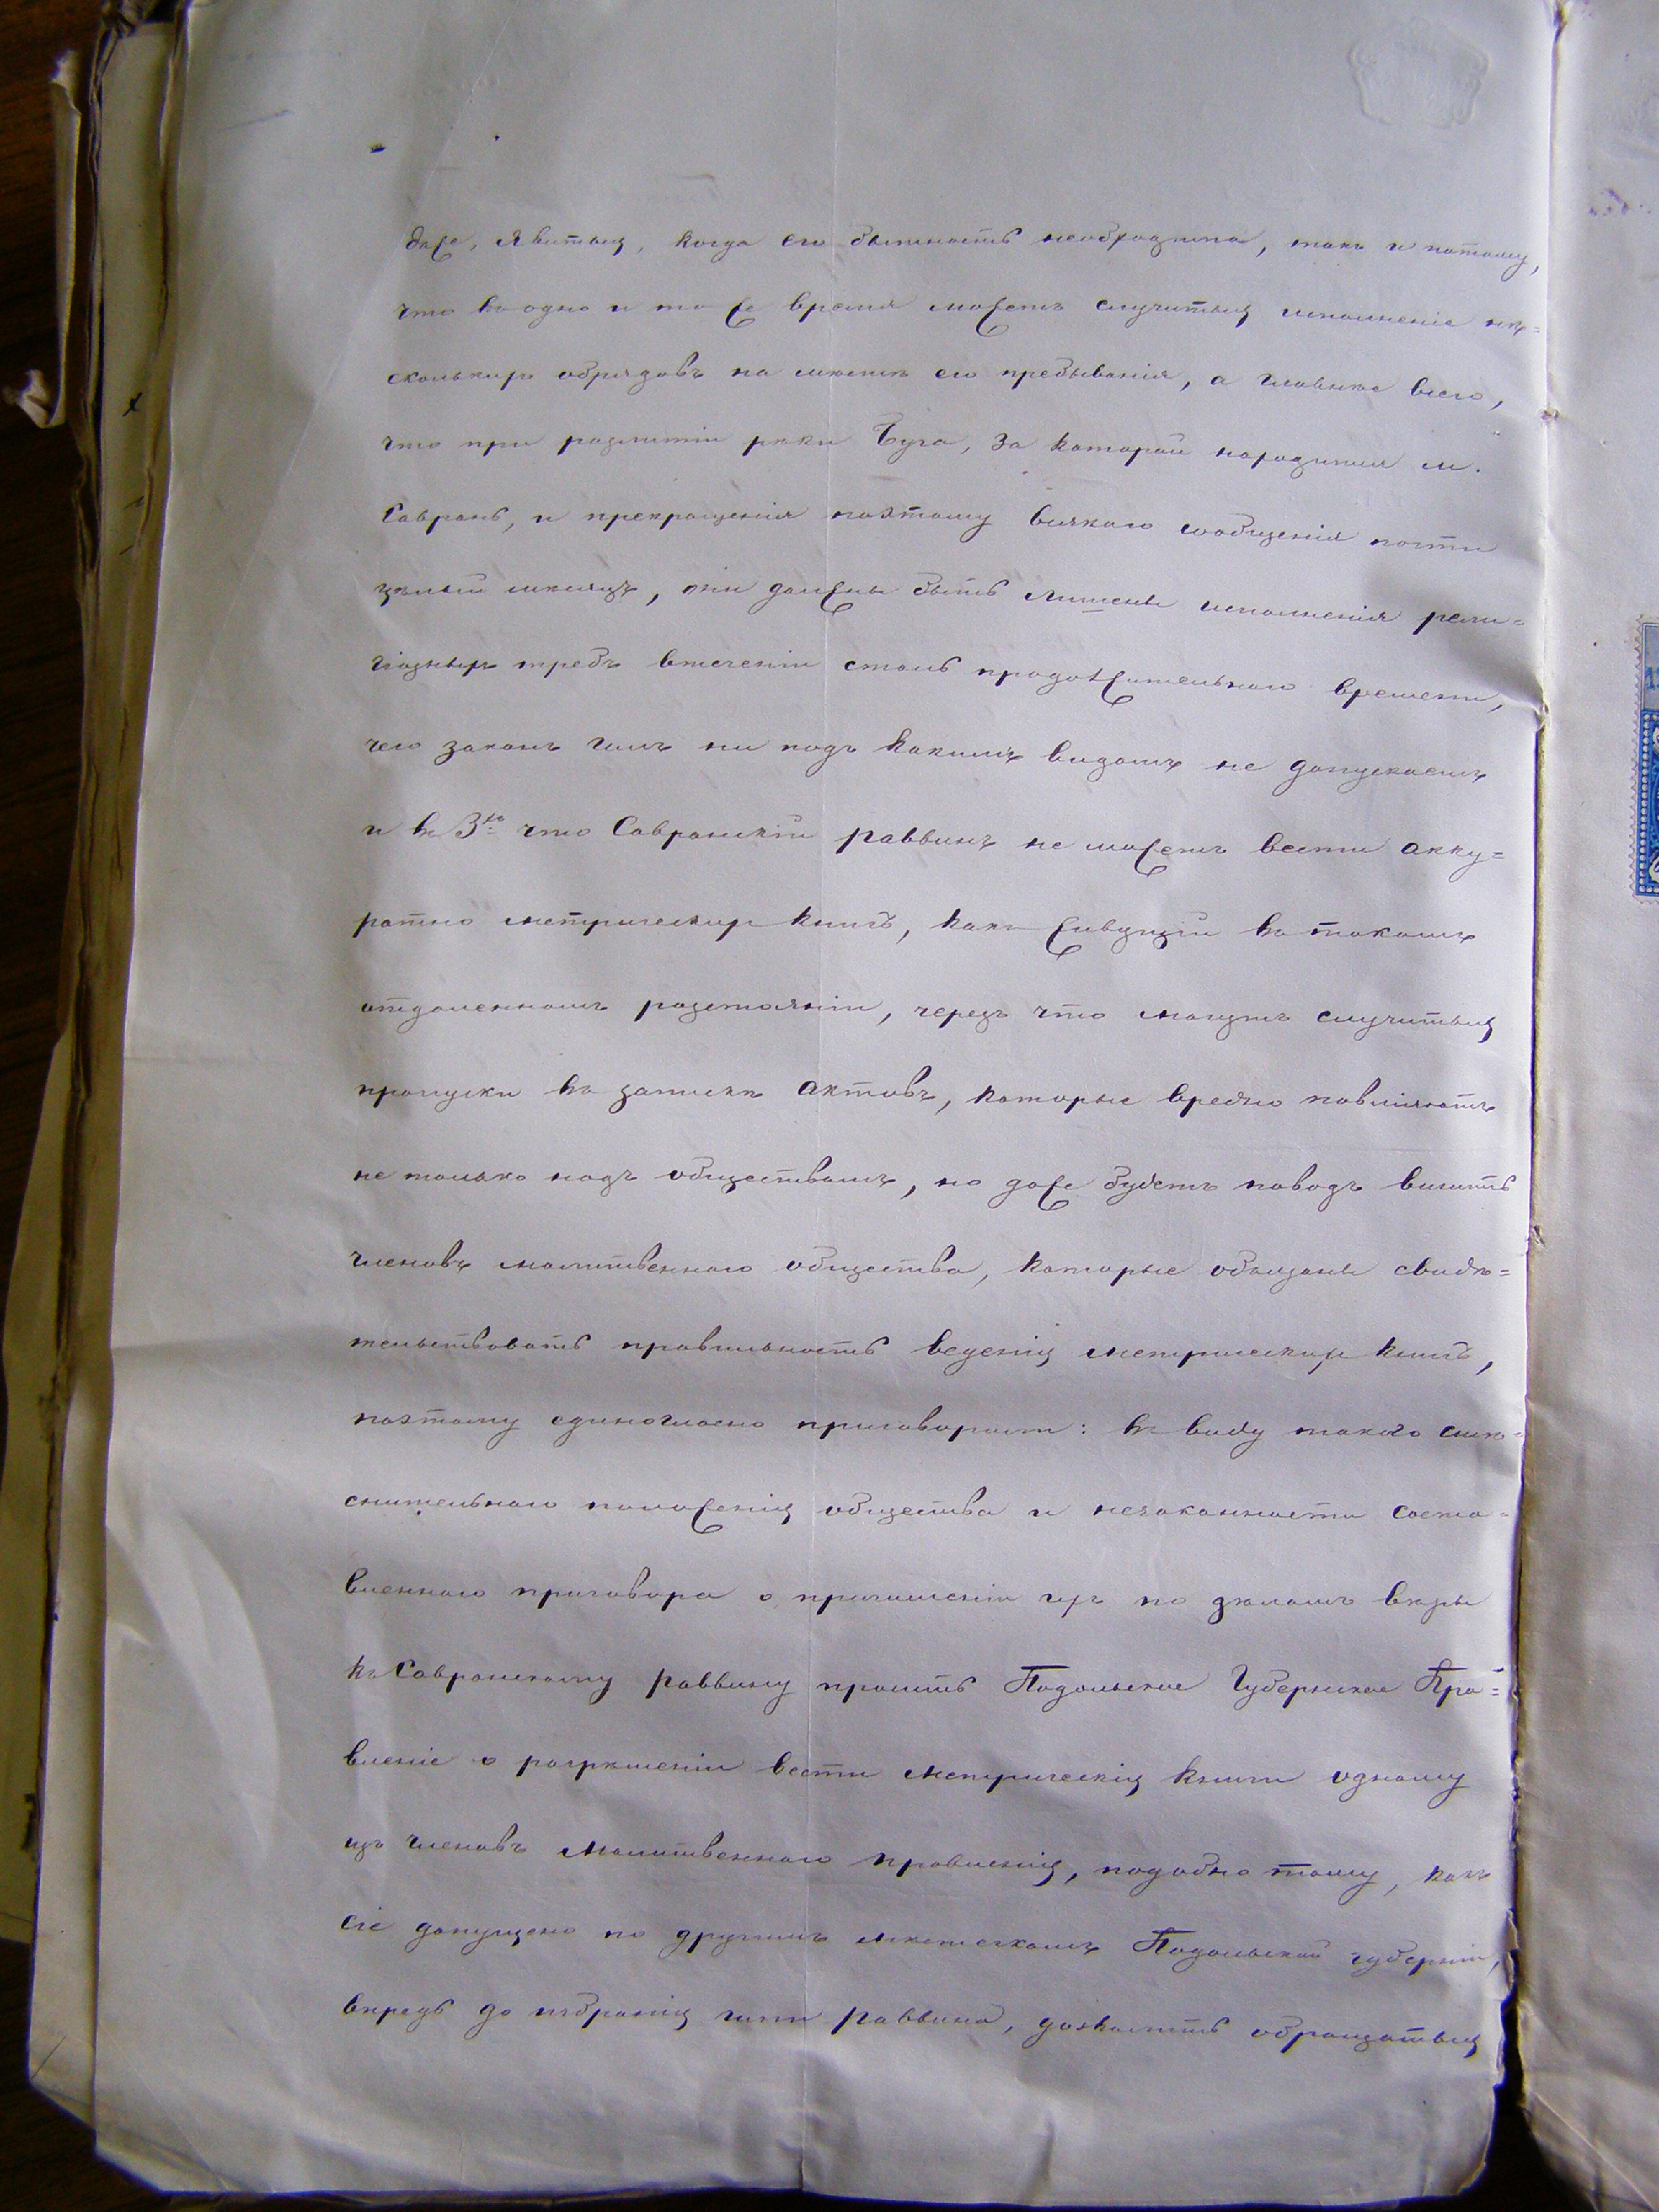 даже, явиться, когда его бытность необходима, такъ и потому,
что въ одно и то же время можетъ случиться исполненіе нѣ=
сколькихъ обрядовъ на мѣстѣ его пребыванія, а главное всего,
что при разлитіи рѣки Буга, за которой находится м.
Саврань, и прекращенія поэтому всякаго сообщенія почти
цѣлый мѣсяцъ, они должны быть лишены исполненія рели=
гіозныхъ требъ втеченіи столь продолжительнаго времени,
чего законъ нашъ ни подъ какимъ видомъ не допускаетъ
и въ 3хъ что Савранскій раввинъ не можетъ вести акку=
ратно метрическихъ книгъ, какъ живущій въ такомъ
отдаленномъ разстояніи, чрезъ что могутъ случиться
пропуски въ запискѣ актовъ, которые вредно повліяютъ
не только надъ обществомъ, но даже будетъ поводъ винить
членовъ молитвеннаго общества, которые обязаны свидѣ=
тельствовать правильность веденія метрическихъ книгъ,
поэтому единогласно приговорили: въ виду такого стѣ=
снительнаго положенія общества и незаконности соста=
вленнаго приговора о причисленіи ихъ по дѣламъ вѣры
къ Савранскому раввину просить Подольское Губернское Пра=
вленіе о разрѣшеніи вести метрическія книги одному
изъ членовъ молитвеннаго правленія, подобно тому, какъ
сіе допущено по другимъ мѣстечкамъ Подольской губерніи,
впредь до избранія нами раввина, дозволить обращаться